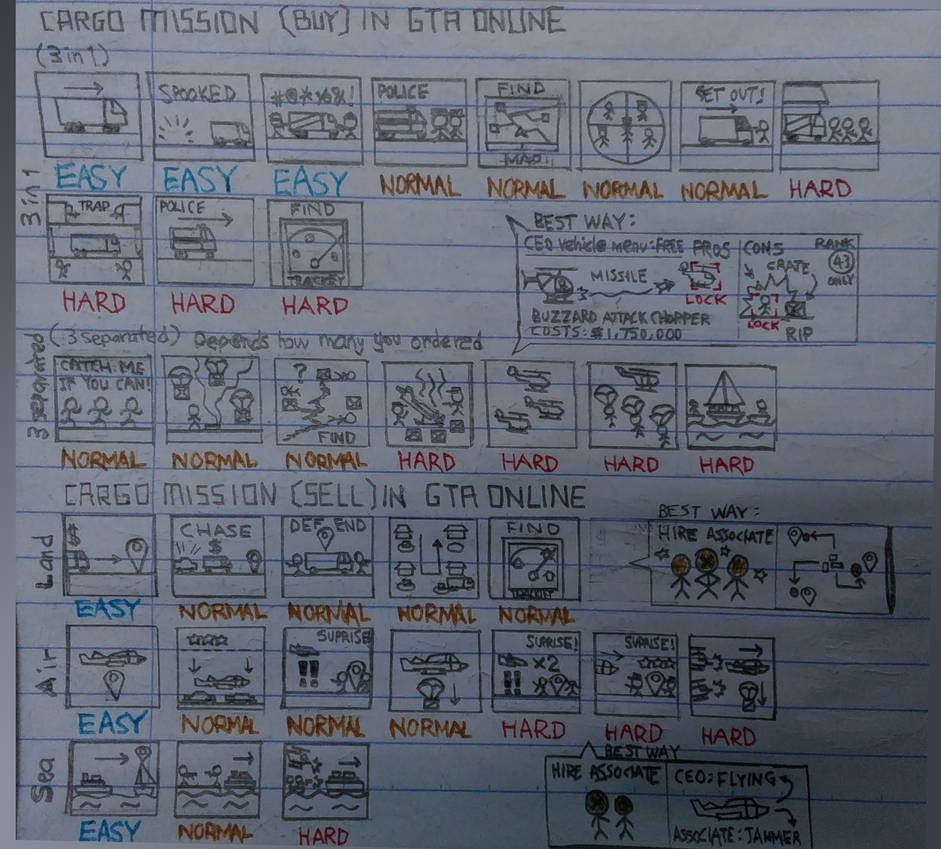 CARGO MISSION (BUY) IN GTA ONLINE
(3 in 1)
3 in 1
SPOOKED
#@*%&!
POLICE
FIND
MAP
GET OUT!
EASY EASY EASY NORMAL NORMAL NORMAL NORMAL HARD
TRAP
POLICE
FIND
TRACKEY
HARD HARD HARD
BEST WAY:
CEO vehicle menu: FREE PROS
MISSILE
LOCK
BUZZARD ATTACK CHOPPER
COSTS: $1,750,000
CONS
CRATE
LOCK
RIP
RANK
43
ONLY
(3 separated) Depends how many you ordered
3 separated
CATCH ME
IF YOU CAN!
?
FIND
NORMAL NORMAL NORMAL HARD HARD HARD HARD
CARGO MISSION (SELL) IN GTA ONLINE
Land
$
CHASE
$
DEFEND
FIND
EASY NORMAL NORMAL NORMAL NORMAL
BEST WAY:
HIRE ASSOCIATE
Air
SUPRISE
SUPRISE!
x2
SUPRISE!
EASY NORMAL NORMAL NORMAL HARD HARD HARD
Sea
EASY NORMAL HARD
BEST WAY
HIRE ASSOCIATE
CEO: FLYING
ASSOCIATE: JAMMER